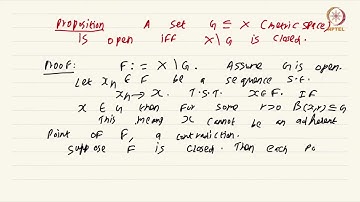 Proposition A set G ⊆ X (metric space)
is open iff X \ G is closed.
Proof: F := X \ G. Assume G is open.
Let xn ∈ F be a sequence s.t.
xn → x. T.S.T. x ∈ F. If
x ∈ G then for some r>0 B(x,r) ⊆ G
This means x cannot be an adherent
point of F, a contradiction.
Suppose F is closed. Then each po